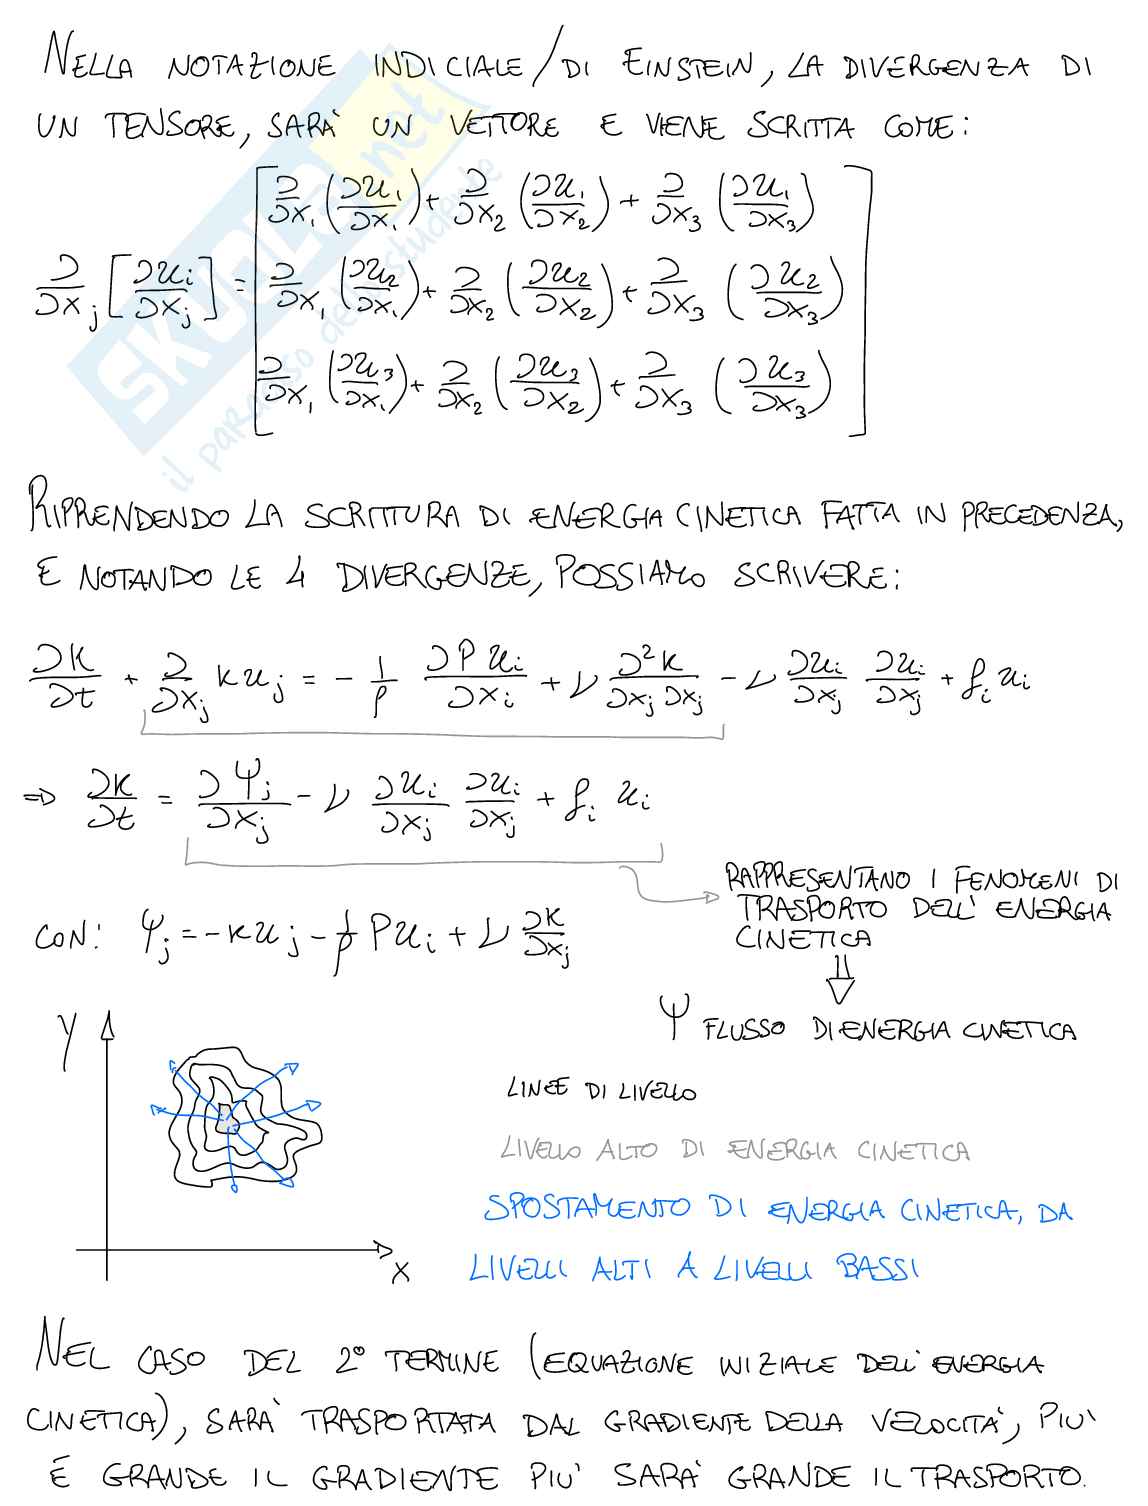 NELLA NOTAZIONE INDICIALE/DI EINSTEIN, LA DIVERGENZA DI
UN TENSORE, SARÀ UN VETTORE E VIENE SCRITTA COME:
∂/∂x₁ (∂u₁/∂x₁) + ∂/∂x₂ (∂u₁/∂x₂) + ∂/∂x₃ (∂u₁/∂x₃)
∂/∂xⱼ [∂uᵢ/∂xⱼ] = ∂/∂x₁ (∂u₂/∂x₁) + ∂/∂x₂ (∂u₂/∂x₂) + ∂/∂x₃ (∂u₂/∂x₃)
∂/∂x₁ (∂u₃/∂x₁) + ∂/∂x₂ (∂u₃/∂x₂) + ∂/∂x₃ (∂u₃/∂x₃)
SKUOLA.net
il paradiso dello studente
RIPRENDENDO LA SCRITTURA DI ENERGIA CINETICA FATTA IN PRECEDENZA,
E NOTANDO LE 4 DIVERGENZE, POSSIAMO SCRIVERE:
∂K/∂t + ∂/∂xⱼ K uⱼ = - 1/ρ ∂P uᵢ/∂xᵢ + ν ∂²K/∂xⱼ ∂xⱼ - ν ∂uᵢ/∂xⱼ ∂uᵢ/∂xⱼ + fᵢ uᵢ
⇒ ∂K/∂t = ∂Ψⱼ/∂xⱼ - ν ∂uᵢ/∂xⱼ ∂uᵢ/∂xⱼ + fᵢ uᵢ
RAPPRESENTANO I FENOMENI DI
TRASPORTO DELL'ENERGIA
CINETICA
CON: Ψⱼ = - K uⱼ - 1/ρ P uᵢ + ν ∂K/∂xⱼ
Ψ FLUSSO DI ENERGIA CINETICA
Y
X
LINEE DI LIVELLO
LIVELLO ALTO DI ENERGIA CINETICA
SPOSTAMENTO DI ENERGIA CINETICA, DA
LIVELLI ALTI A LIVELLI BASSI
NEL CASO DEL 2° TERMINE (EQUAZIONE INIZIALE DELL'ENERGIA
CINETICA), SARÀ TRASPORTATA DAL GRADIENTE DELLA VELOCITÀ, PIU'
È GRANDE IL GRADIENTE PIU' SARÀ GRANDE IL TRASPORTO.